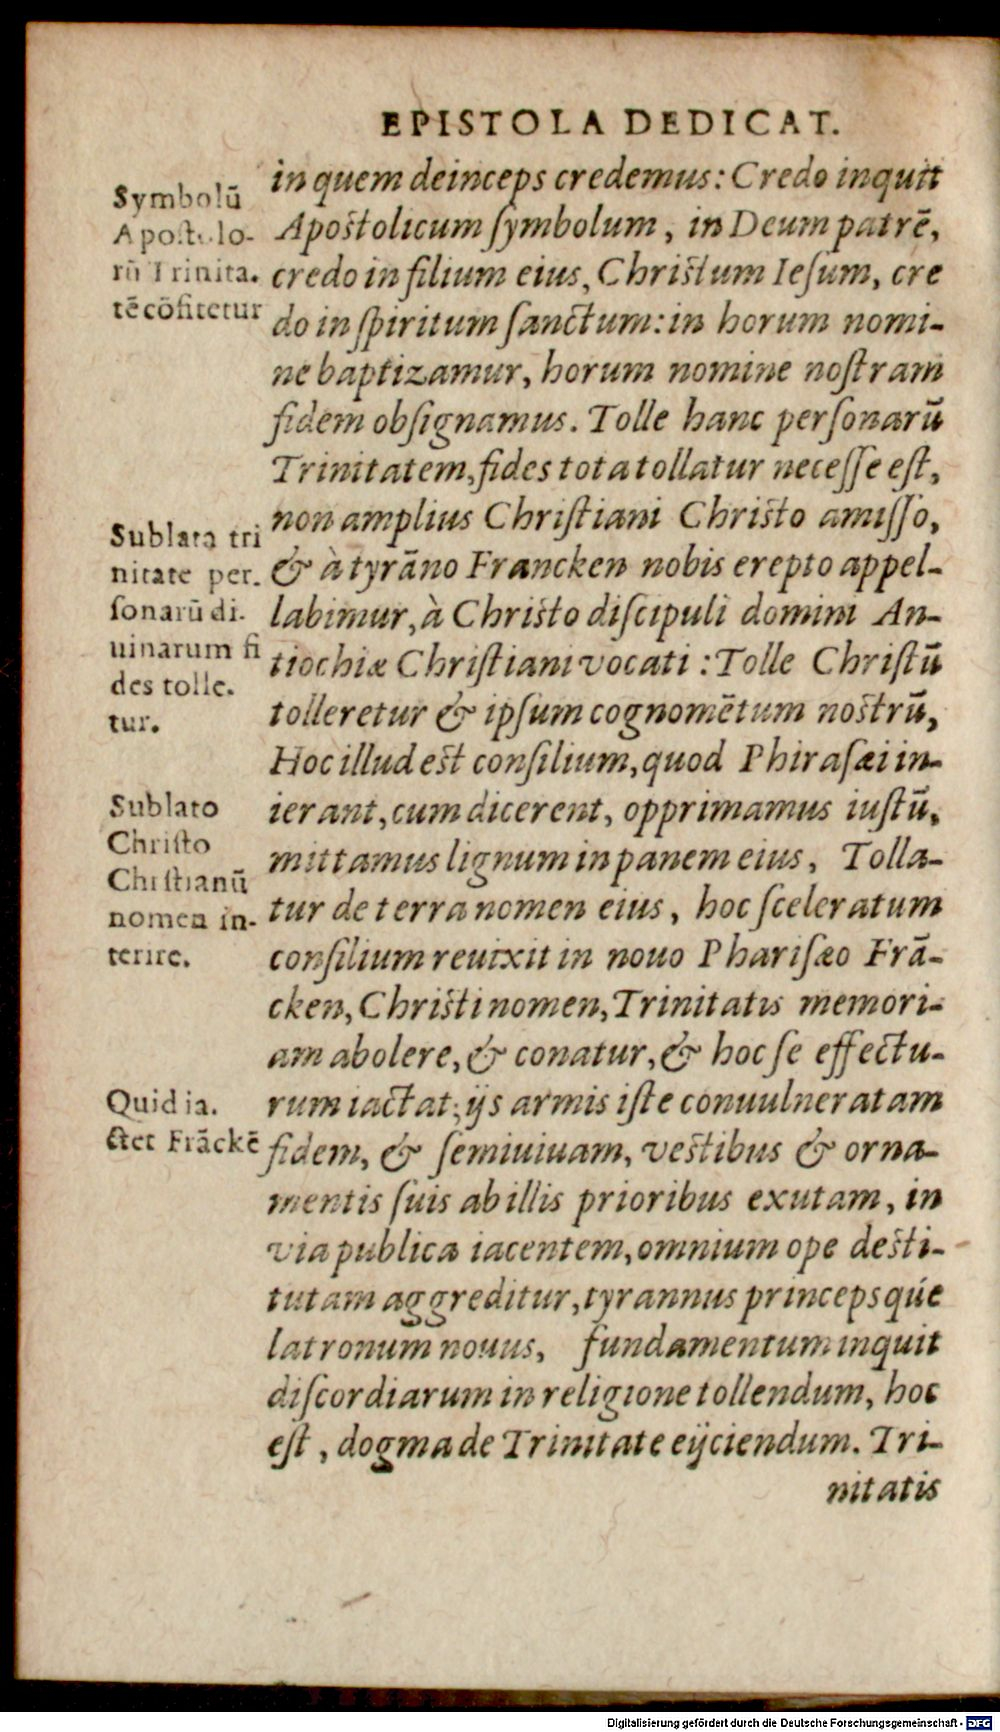 EPISTOLA DEDICAT.
Symbolū
Apostolo-
rū Trinita.
tē cōfitetur
in quem deinceps credemus: Credo inquit
Apostolicum ſymbolum, in Deum patrē,
credo in filium eius, Christum Ieſum, cre
do in ſpiritum ſanctum: in horum nomi-
ne baptizamur, horum nomine noſtram
fidem obſignamus. Tolle hanc perſonarū
Trinitatem, fides tota tollatur neceſſe eſt,
non amplius Chriſtiani Christo amiſſo,
Sublata tri
nitate per.
ſonarū di.
uinarum fi
des tolle.
tur.
& à tyrāno Francken nobis erepto appel-
labimur, à Christo diſcipuli domini An-
tiochiæ Chriſtiani vocati: Tolle Chriſtū
tolleretur & ipſum cognomētum nostrū,
Hoc illud est conſilium, quod Phiraſæi in-
ierant, cum dicerent, opprimamus iuſtū,
Sublato
Chriſto
Chriſtianū
nomen in-
terire.
mittamus lignum in panem eius, Tolla-
tur de terra nomen eius, hoc ſceleratum
conſilium reuixit in nouo Phariſæo Frā-
cken, Christi nomen, Trinitatis memori-
am abolere, & conatur, & hoc ſe effectu-
rum iactat; ijs armis iſte conuulneratam
Quid ia.
ctet Frāckē
fidem, & ſemiuiuam, vestibus & orna-
mentis ſuis ab illis prioribus exutam, in
via publica iacentem, omnium ope desti-
tutam aggreditur, tyrannus princepsqúe
latronum nouus, fundamentum inquit
diſcordiarum in religione tollendum, hoc
eſt, dogma de Trinitate eijciendum. Tri-
nitatis
Digitalisierung gefördert durch die Deutsche Forschungsgemeinschaft - DFG